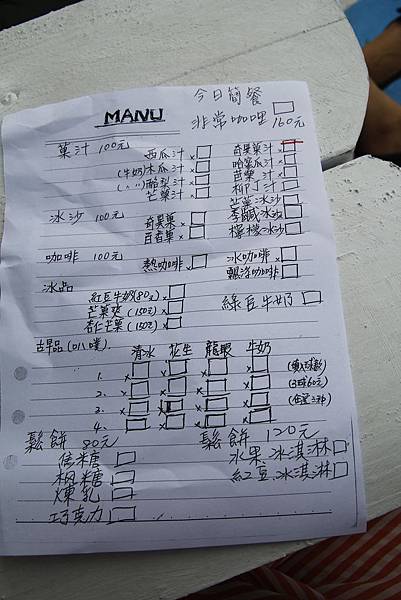 MANU
今日簡餐
非常咖哩 160元
菓汁 100元
西瓜汁 x
奇異菓汁 x
(牛奶)木瓜汁 x
哈蜜瓜汁 x
(〃 〃)酪梨汁 x
芭樂汁 x
芒菓汁 x
柳丁汁 x
芒菓冰沙 x
冰沙 100元
李鹹冰沙 x
奇異菓 x
檸檬冰沙 x
百香菓 x
咖啡 100元
熱咖啡 x
冰咖啡 x
飄浮咖啡 x
冰品
紅豆牛奶(80元) x
綠豆牛奶
芒菓爽 (150元) x
杏仁芒菓(150元) x
古早品(叭噗)
清冰 花生 龍眼 牛奶
1. x x x x
2. x x x x (3球60元)
3. x x x x
4. x x x x
鬆餅 80元
鬆餅 120元
蜂糖
水果冰淇淋
楓糖
紅豆冰淇淋
煉乳
巧克力